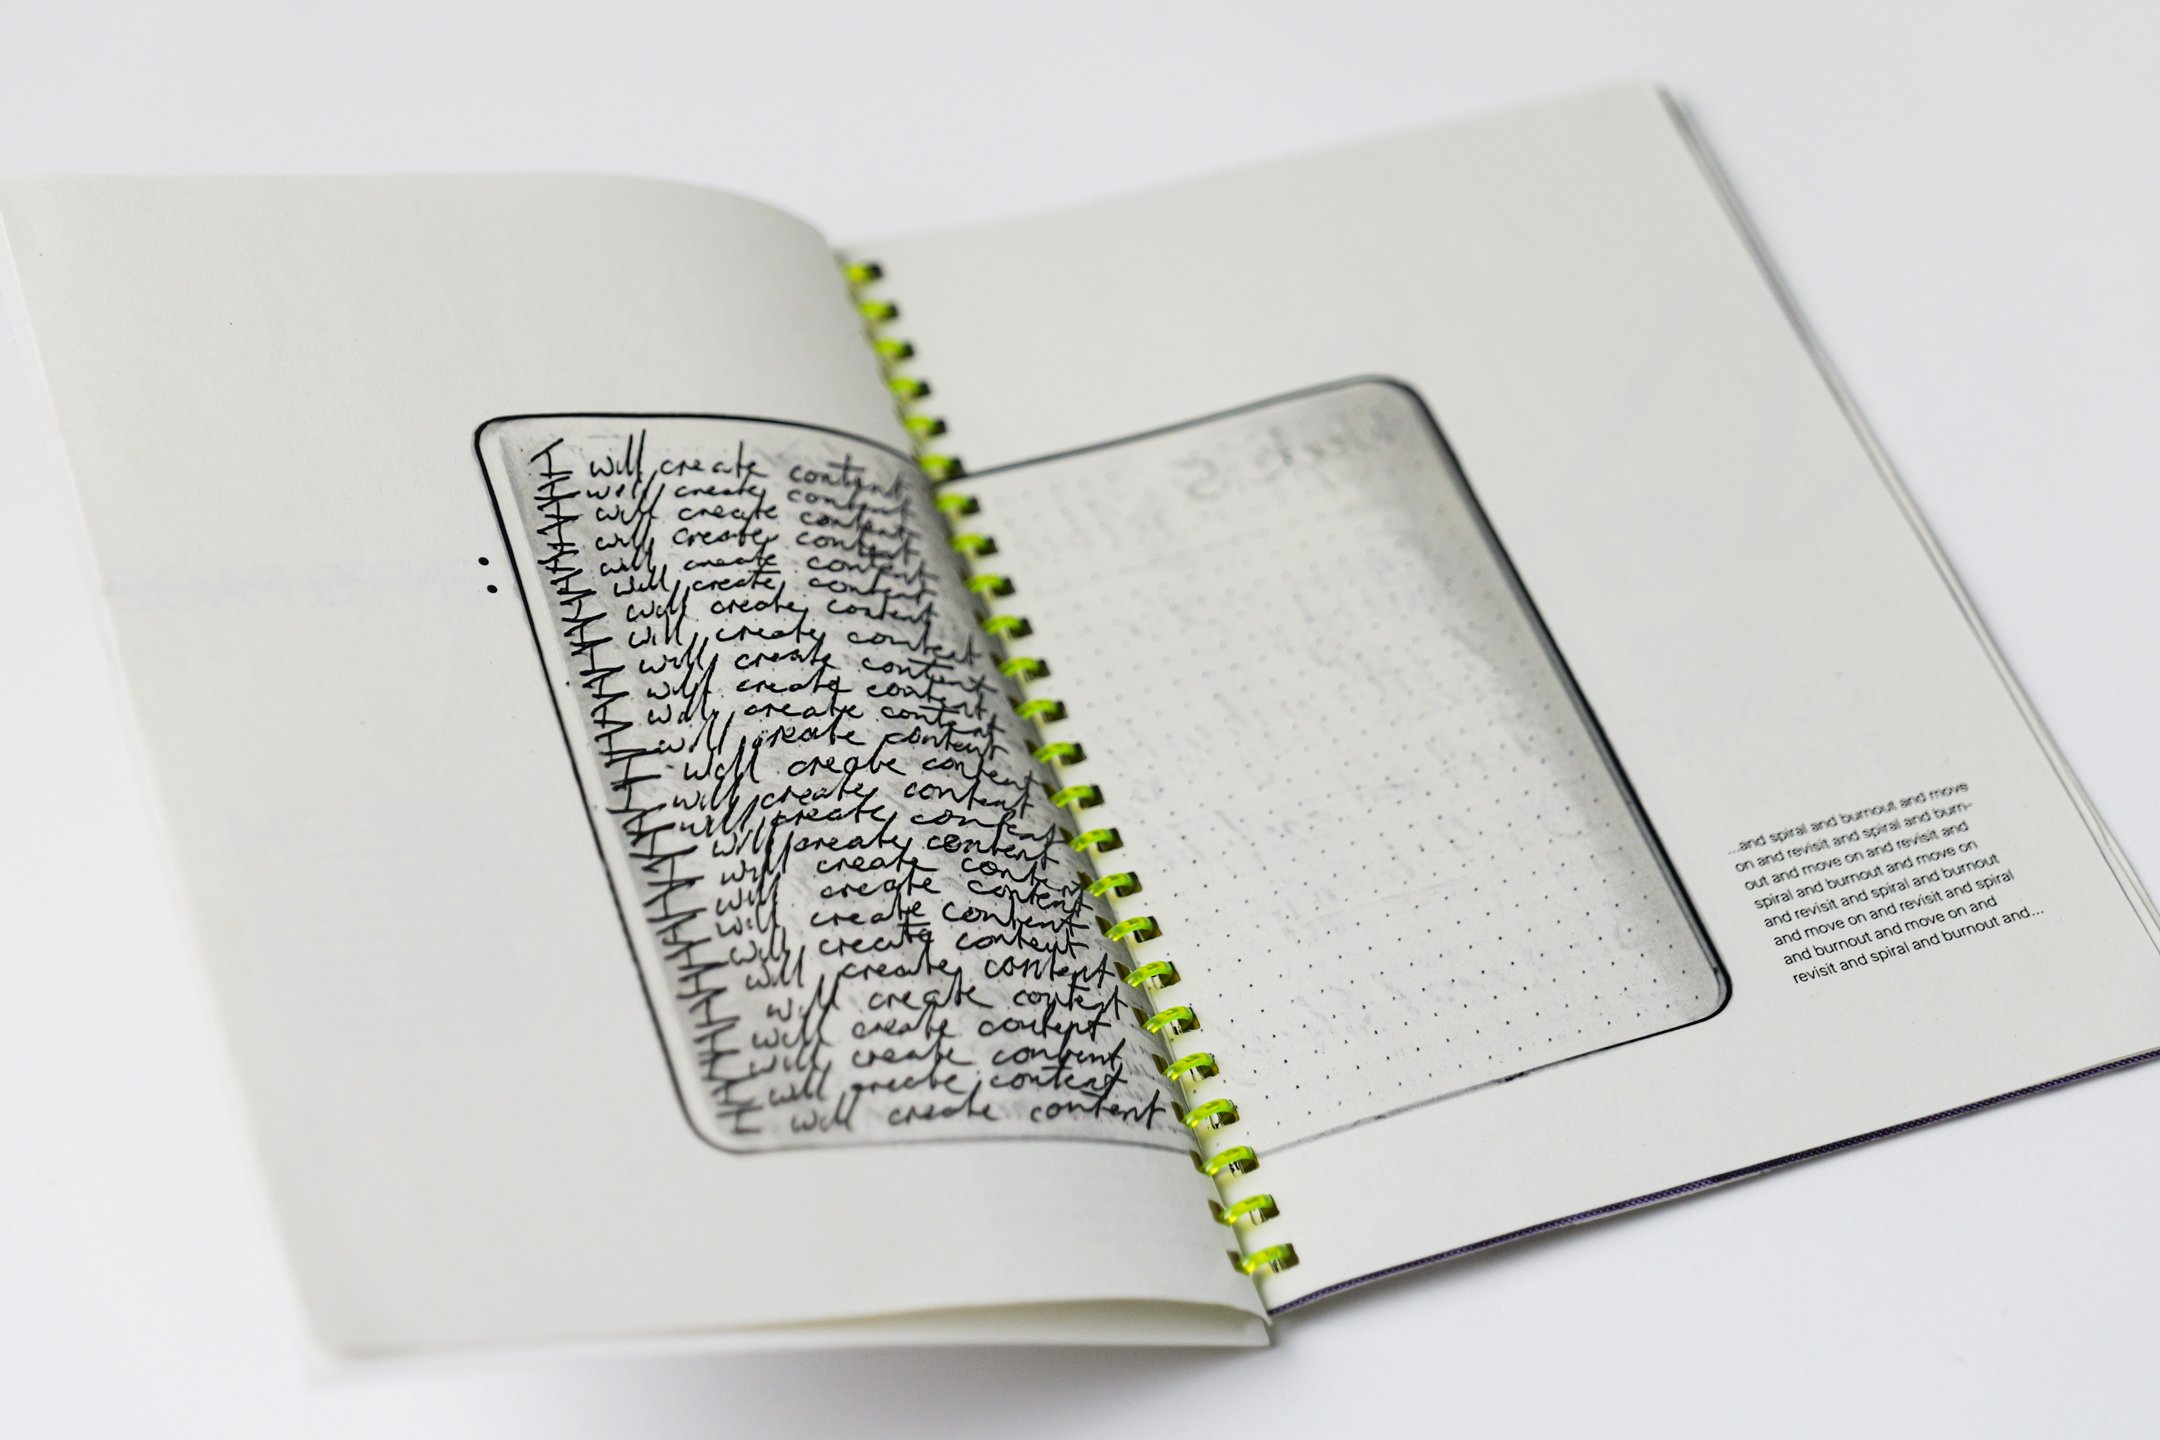 I will create content
I will create content
I will create content
I will create content
I will create content
I will create content
I will create content
I will create content
I will create content
I will create content
I will create content
I will create content
I will create content
I will create content
I will create content
I will create content
I will create content
I will create content
I will create content
I will create content
I will create content
I will create content
I will create content
I will create content
I will create content
I will create content
...and spiral and burnout and move
on and revisit and spiral and burn-
out and move on and revisit and
spiral and burnout and move on
and revisit and spiral and burnout
and move on and revisit and spiral
and burnout and move on and
revisit and spiral and burnout and...